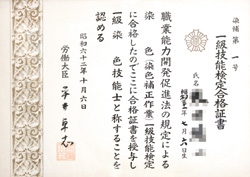 染補第一号
一級技能検定合格証書
氏名
七月六日生
職業能力開発促進法の規定による
染色（染色補正作業）一級技能検定
に合格したのでここに合格証書を授与し
一級染色技能士と称することを
認める
昭和六十三年十月六日
労働大臣